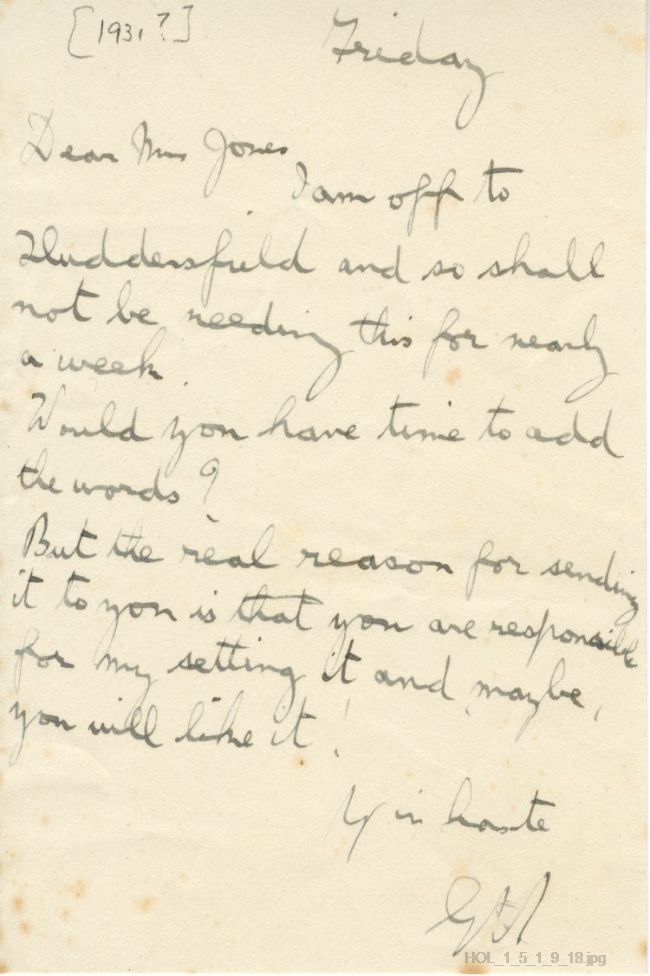 [1931?]
Friday
Dear Mrs Jones
I am off to
Huddersfield and so shall
not be needing this for nearly
a week.
Would you have time to add
the words?
But the real reason for sending
it to you is that you are responsible
for my setting it and, maybe,
you will like it!
Y in haste
GH
HOL_1_5_1_9_18.jpg